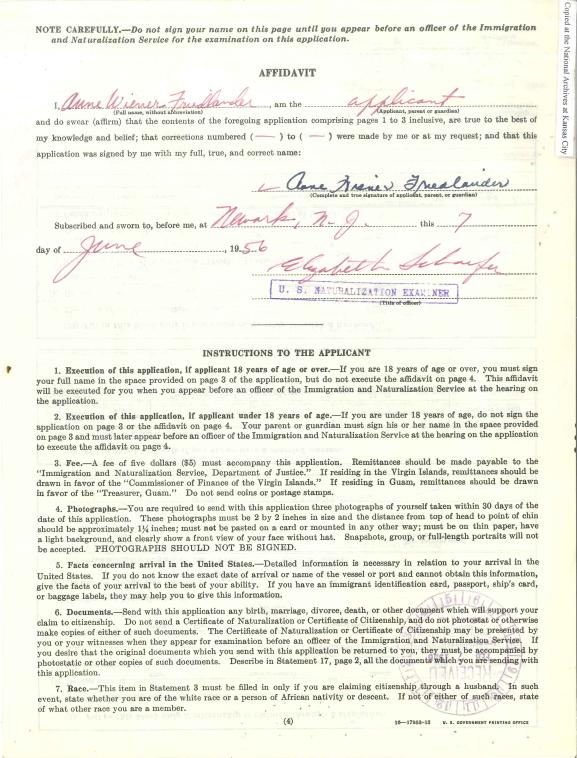 Copied at the National Archives at Kansas City
NOTE CAREFULLY.—Do not sign your name on this page until you appear before an officer of the Immigration
and Naturalization Service for the examination on this application.
AFFIDAVIT
I, Anne Wiener Friedlander, am the applicant
(Full name, without abbreviation) (Applicant, parent or guardian)
and do swear (affirm) that the contents of the foregoing application comprising pages 1 to 3 inclusive, are true to the best of
my knowledge and belief; that corrections numbered ( — ) to ( — ) were made by me or at my request; and that this
application was signed by me with my full, true, and correct name:
Anne Wiener Friedlander
(Complete and true signature of applicant, parent, or guardian)
Subscribed and sworn to, before me, at Newark, N. J. this 7
day of June, 1956
Elizabeth Schaefer
U. S. NATURALIZATION EXAMINER
(Title of officer)
INSTRUCTIONS TO THE APPLICANT
1. Execution of this application, if applicant 18 years of age or over.—If you are 18 years of age or over, you must sign
your full name in the space provided on page 3 of the application, but do not execute the affidavit on page 4. This affidavit
will be executed for you when you appear before an officer of the Immigration and Naturalization Service at the hearing on
the application.
2. Execution of this application, if applicant under 18 years of age.—If you are under 18 years of age, do not sign the
application on page 3 or the affidavit on page 4. Your parent or guardian must sign his or her name in the space provided
on page 3 and must later appear before an officer of the Immigration and Naturalization Service at the hearing on the application
to execute the affidavit on page 4.
3. Fee.—A fee of five dollars ($5) must accompany this application. Remittances should be made payable to the
"Immigration and Naturalization Service, Department of Justice." If residing in the Virgin Islands, remittances should be
drawn in favor of the "Commissioner of Finance of the Virgin Islands." If residing in Guam, remittances should be drawn
in favor of the "Treasurer, Guam." Do not send coins or postage stamps.
4. Photographs.—You are required to send with this application three photographs of yourself taken within 30 days of the
date of this application. These photographs must be 2 by 2 inches in size and the distance from top of head to point of chin
should be approximately 1¼ inches; must not be pasted on a card or mounted in any other way; must be on thin paper, have
a light background, and clearly show a front view of your face without hat. Snapshots, group, or full-length portraits will not
be accepted. PHOTOGRAPHS SHOULD NOT BE SIGNED.
5. Facts concerning arrival in the United States.—Detailed information is necessary in relation to your arrival in the
United States. If you do not know the exact date of arrival or name of the vessel or port and cannot obtain this information,
give the facts of your arrival to the best of your ability. If you have an immigrant identification card, passport, ship's card,
or baggage labels, they may help you to give this information.
6. Documents.—Send with this application any birth, marriage, divorce, death, or other document which will support your
claim to citizenship. Do not send a Certificate of Naturalization or Certificate of Citizenship, and do not photostat or otherwise
make copies of either of such documents. The Certificate of Naturalization or Certificate of Citizenship may be presented by
you or your witnesses when they appear for examination before an officer of the Immigration and Naturalization Service. If
you desire that the original documents which you send with this application be returned to you, they must be accompanied by
photostatic or other copies of such documents. Describe in Statement 17, page 2, all the documents which you are sending with
this application.
7. Race.—This item in Statement 3 must be filled in only if you are claiming citizenship through a husband. In such
event, state whether you are of the white race or a person of African nativity or descent. If not of either of such races, state
of what other race you are a member.
(4) 16—17983-13 U. S. GOVERNMENT PRINTING OFFICE